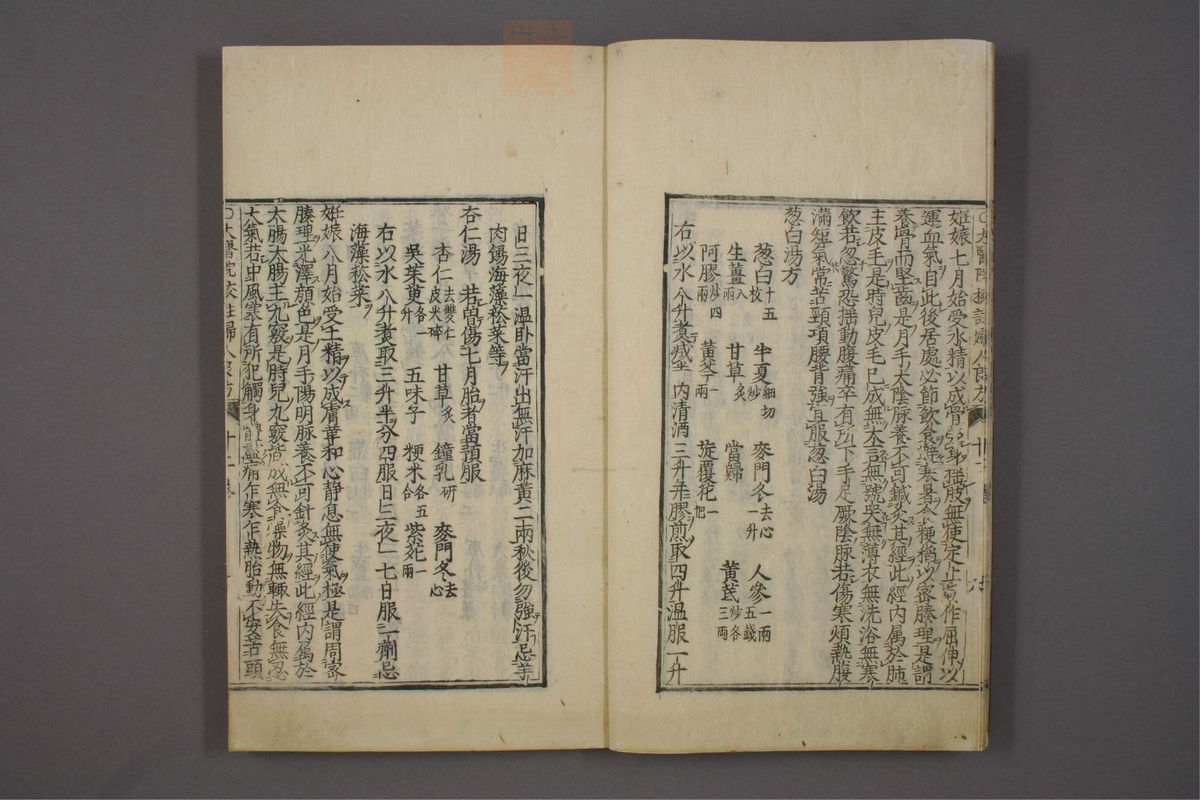 太醫院校註婦人良方 十二卷
妊娠七月始受木精以成骨勞身搖肢無使定止動作屈伸以
運血氣自此後居處必節飲食避寒暑食粳稻以密腠理是謂
養骨而堅齒是月手太陰脉養不可鍼灸其經此經内属於肺
主皮毛是時兒皮毛已成無大言無號哭無薄衣無洗浴無寒
飲若忽驚恐揺動腹痛卒有所下手足厥陰脉若傷寒煩熱腹
滿短氣常苦頸項腰背強宜服葱白湯
葱白湯方
葱白十五枚 半夏細切炒 麥門冬去心一升 人參一兩五錢
生薑八兩 甘草炙 當歸 黄芪炒各三兩
阿膠炒四兩 黄芩一兩 旋覆花一把
右以水八升煮减半内清酒三升并膠煎取四升温服一升
日三夜一温卧當汗出無汗加麻黄二兩秋後勿強汗忌羊
肉餳海藻菘菜等
杏仁湯 若曽傷七月胎者當預服
杏仁去雙仁皮尖碎 甘草炙 鐘乳研 麥門冬去心
吳茱萸各一升 五味子 粳米各五合 紫菀一兩
右以水八升煮取三升半分四服日三夜一七日服一劑忌
海藻菘菜
妊娠八月始受土精以成膚革和心静息無使氣極是謂周密
腠理光澤顔色是月手陽明脉養不可針灸其經此經内属於
大腸大腸主九竅是時兒九竅皆成無食燥物無輒失食無忍
大氣若中風寒有所犯觸身體盡痛作寒作熱胎動不安苦頭
太醫院校註婦人良方 十二卷